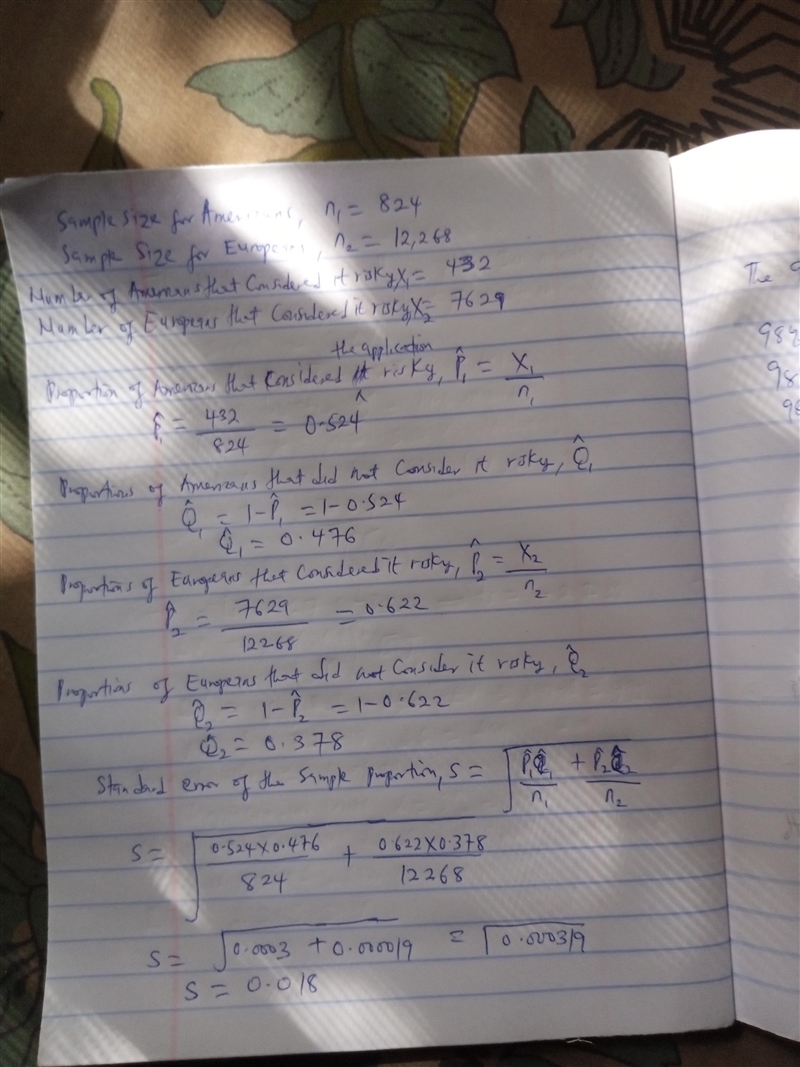 Sample size for Americans, n₁ = 824
Sample Size for Europeans, n₂ = 12,268
Number of Americans that Considered it risky, X₁ = 432
Number of Europeans that Considered it risky, X₂ = 7629
the application
Proportion of Americans that Considered it risky, P̂₁ = X₁/n₁
P̂₁ = 432/824 = 0.524
Proportions of Americans that did not Consider it risky, Q̂₁
Q̂₁ = 1-P̂₁ = 1-0.524
Q̂₁ = 0.476
Proportions of Europeans that Considered it risky, P̂₂ = X₂/n₂
P̂₂ = 7629/12268 = 0.622
Proportions of Europeans that did not Consider it risky, Q̂₂
Q̂₂ = 1-P̂₂ = 1-0.622
Q̂₂ = 0.378
Standard error of the Sample Proportion, S = √(P̂₁Q̂₁/n₁ + P̂₂Q̂₂/n₂)
S = √(0.524×0.476/824 + 0.622×0.378/12268)
S = √(0.0003 + 0.000019) = √0.000319
S = 0.018
The
98
98